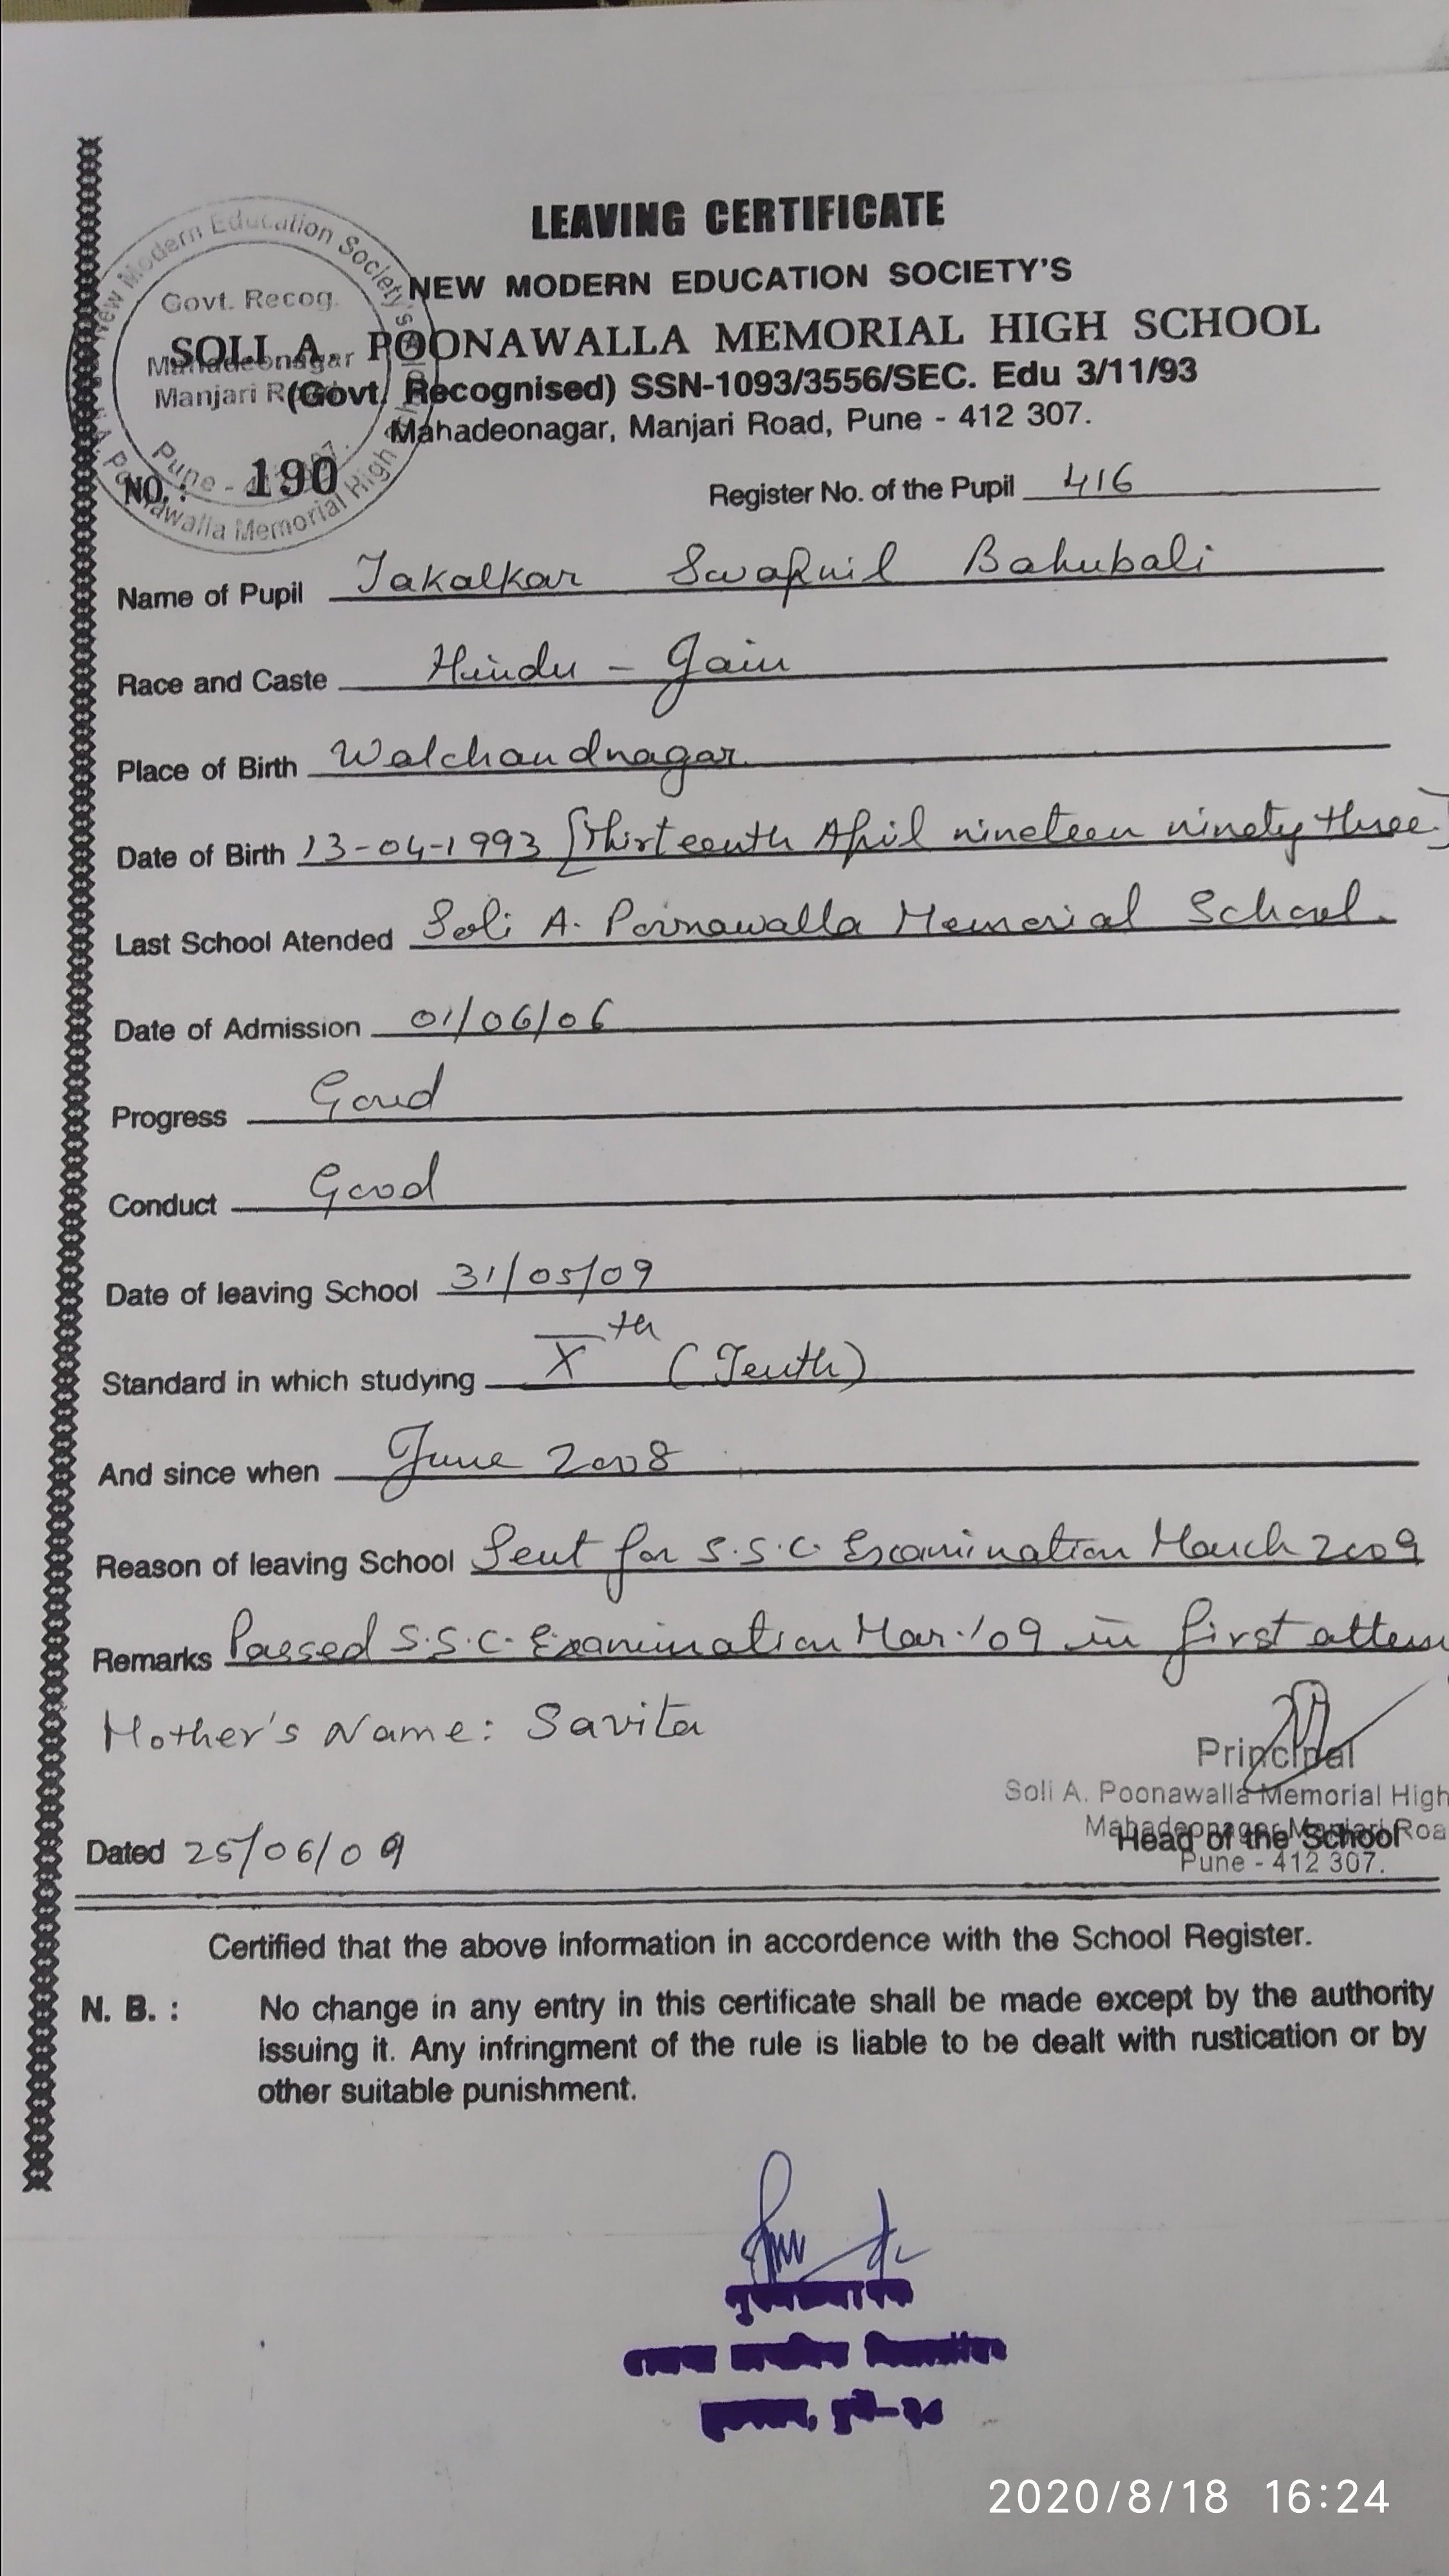 LEAVING CERTIFICATE
NEW MODERN EDUCATION SOCIETY'S
SOLI A. POONAWALLA MEMORIAL HIGH SCHOOL
(Govt. Recognised) SSN-1093/3556/SEC. Edu 3/11/93
Mahadeonagar, Manjari Road, Pune - 412 307.
New Modern Education Society's
Govt. Recog.
Mahadeonagar
Manjari
Pune -
Poonawalla Memorial High
NO. : 190
Register No. of the Pupil 416
Name of Pupil Takalkar Swapnil Bahubali
Race and Caste Hindu - Jain
Place of Birth Walchandnagar
Date of Birth 13-04-1993 [Thirteenth April nineteen ninety three]
Last School Atended Soli A. Poonawalla Memorial School.
Date of Admission 01/06/06
Progress Good
Conduct Good
Date of leaving School 31/05/09
Standard in which studying Xth (Tenth)
And since when June 2008
Reason of leaving School Sent for S.S.C. Examination March 2009
Remarks Passed S.S.C. Examination Mar.'09 in first attem
Mother's Name: Savita
Principal
Soli A. Poonawalla Memorial High
Mahadeonagar Manjari Roa
Head of the School
Pune - 412 307.
Dated 25/06/09
Certified that the above information in accordence with the School Register.
N. B. : No change in any entry in this certificate shall be made except by the authority
issuing it. Any infringment of the rule is liable to be dealt with rustication or by
other suitable punishment.
2020/8/18 16:24